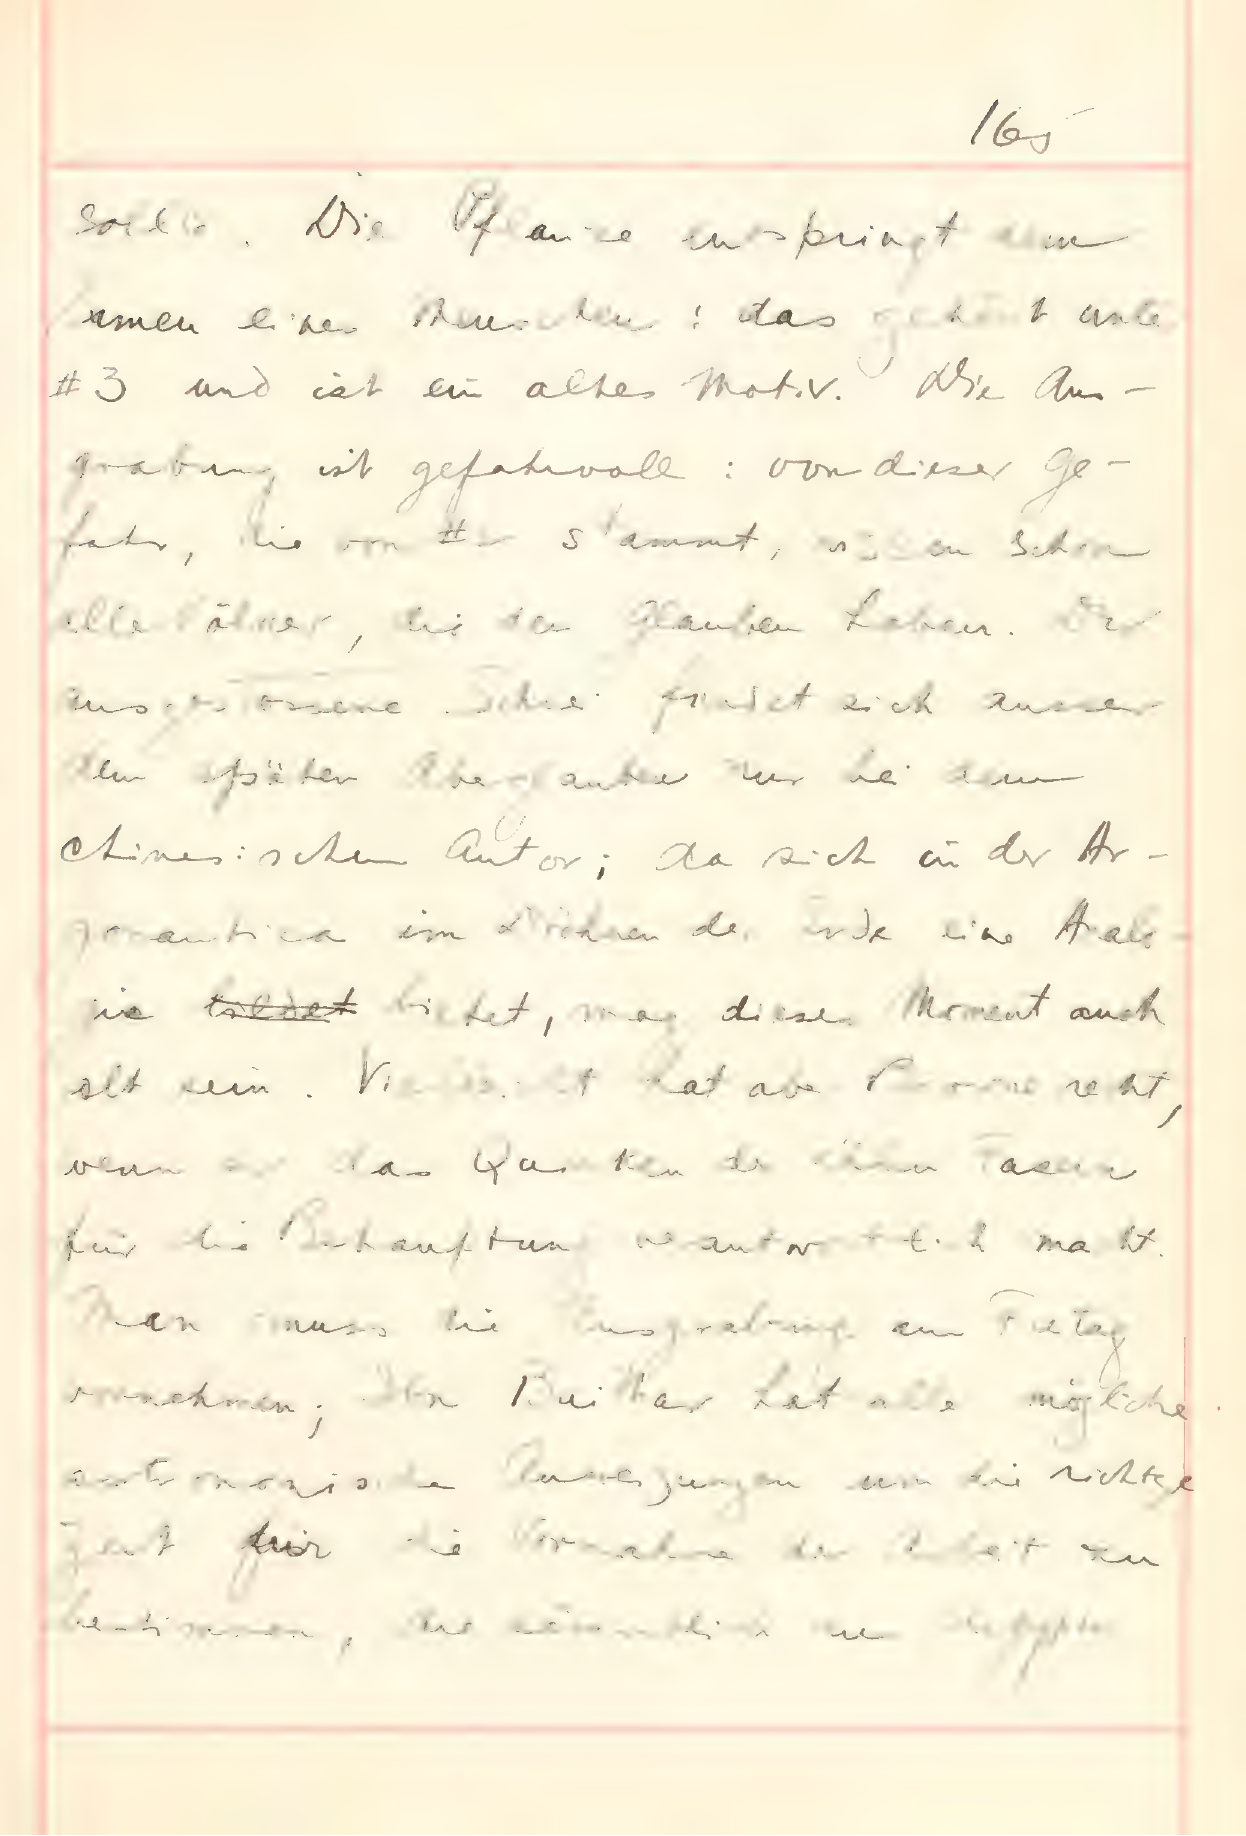 165
sollte. Die Pflanze entspringt dem
Samen eines Menschen: das gehört unter
#3 und ist ein altes Motiv. Die Aus-
grabung ist gefahrvoll: von dieser Ge-
fahr, die von stammt, wissen schon
alle Völker, die den Glauben haben. Der
ausgestossene Schrei findet sich ausser
dem späten Aberglauben nur bei dem
chinesischen Autor; da sich in der Ar-
gonautica im Dröhnen der Erde eine Analo-
gie bildet bietet, mag dieses Moment auch
alt sein. Vielleicht hat aber recht,
wenn er das Quieken der Fasern
für die Behauptung verantwortlich macht.
Man muss die Ausgrabung am Freitag
vornehmen; Ibn Beithar hat alle mögliche
Anweisungen um die richtige
Zeit für die Vornahme der Arbeit zu
bestimmen, die